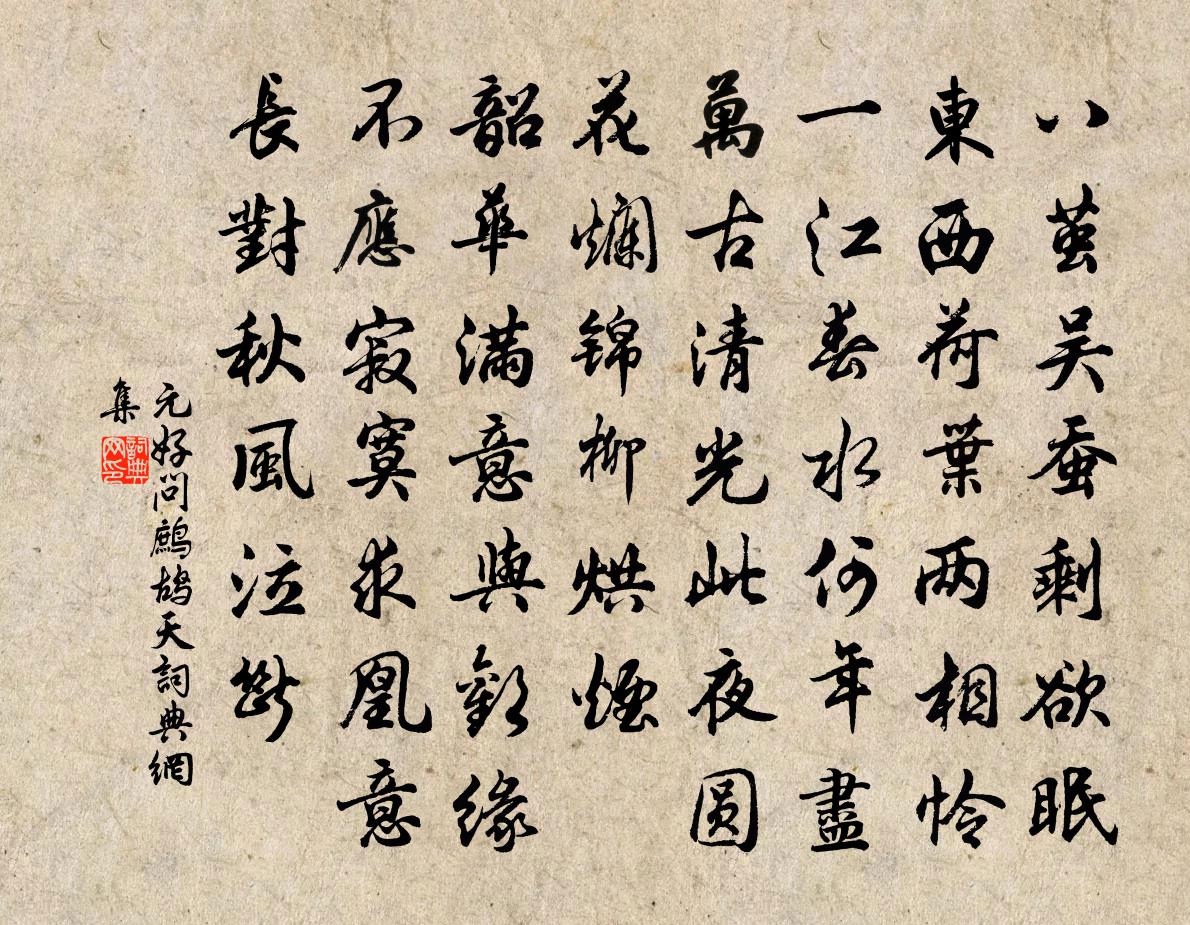 八茧吴蚕剩欲眠
東西荷葉两相怜
一江春水何年盡
萬古清光此夜圆
花爛锦柳烘煙
韶華滿意與歡緣
不應寂寞求凰意
長對秋風泣斷
元好问鷓鴣天詞典網
集
詞典网印